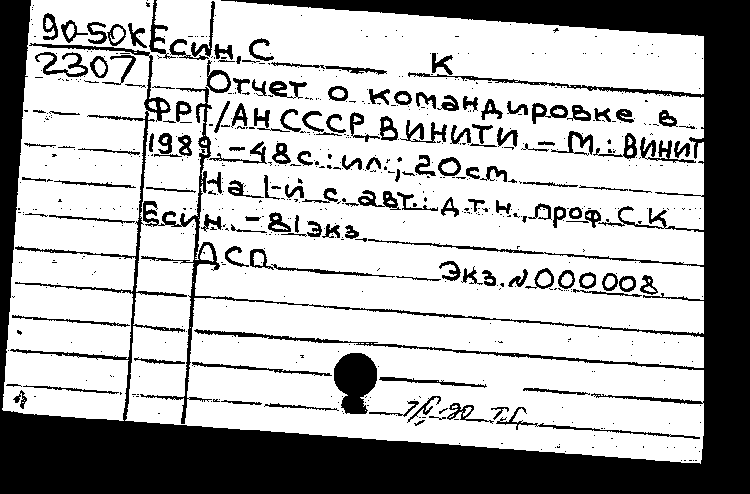 90-50К Есин, С К
2307 Отчет о командировке в
ФРГ/АН СССР, ВИНИТИ. – М.: ВИНИТ
1989. – 48 с.: ил.; 20 cm.
На 1-й с. авт.: д.т.н., проф. С.К.
Есин. – 81 экз.
ДСП. Экз. № 000008.
90 Т.Г.